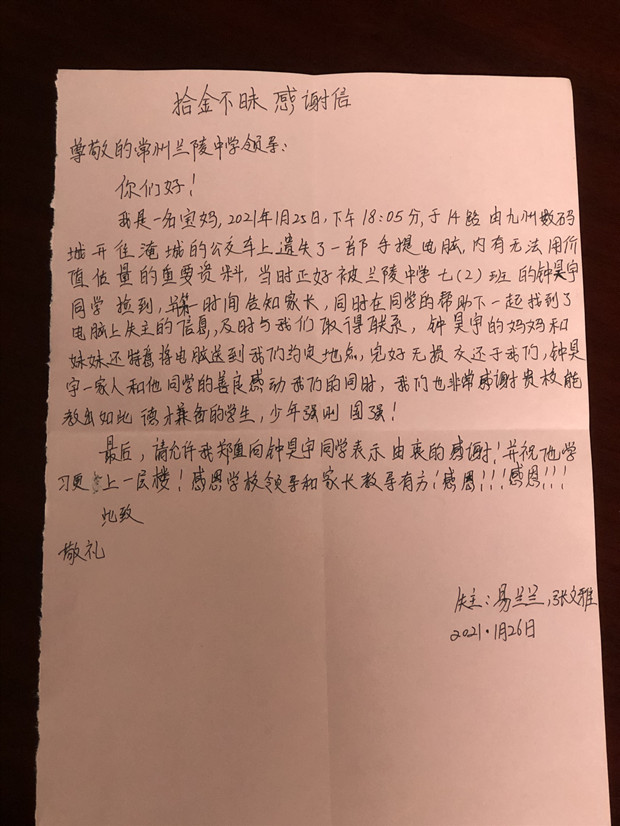 拾金不昧 感谢信
尊敬的常州兰陵中学领导：
你们好！
我是一名宝妈，2021年1月25日，下午18:05分，于14路 由九州数码
城开往淹城的公交车上遗失了一部手提电脑，内有无法用价
值估量的重要资料，当时正好被兰陵中学七(2)班 的钟昊宇
同学 捡到，并第一时间告知家长，同时在同学的帮助下一起找到了
电脑上失主的信息，及时与我们取得联系，钟昊宇的妈妈和
妹妹还特意将电脑送到我们约定地点，完好无损交还于我们，钟昊
宇一家人和他同学的善良感动我们的同时，我们也非常感谢贵校能
教出如此 德才兼备的学生，少年强则 国强！
最后，请允许我郑重向钟昊宇同学表示 由衷的感谢！并祝他学
习更上一层楼！感恩学校领导和家长教导有方！感恩！！！感恩！！！
此致
敬礼
失主：易兰兰，张文雅
2021.1月26日